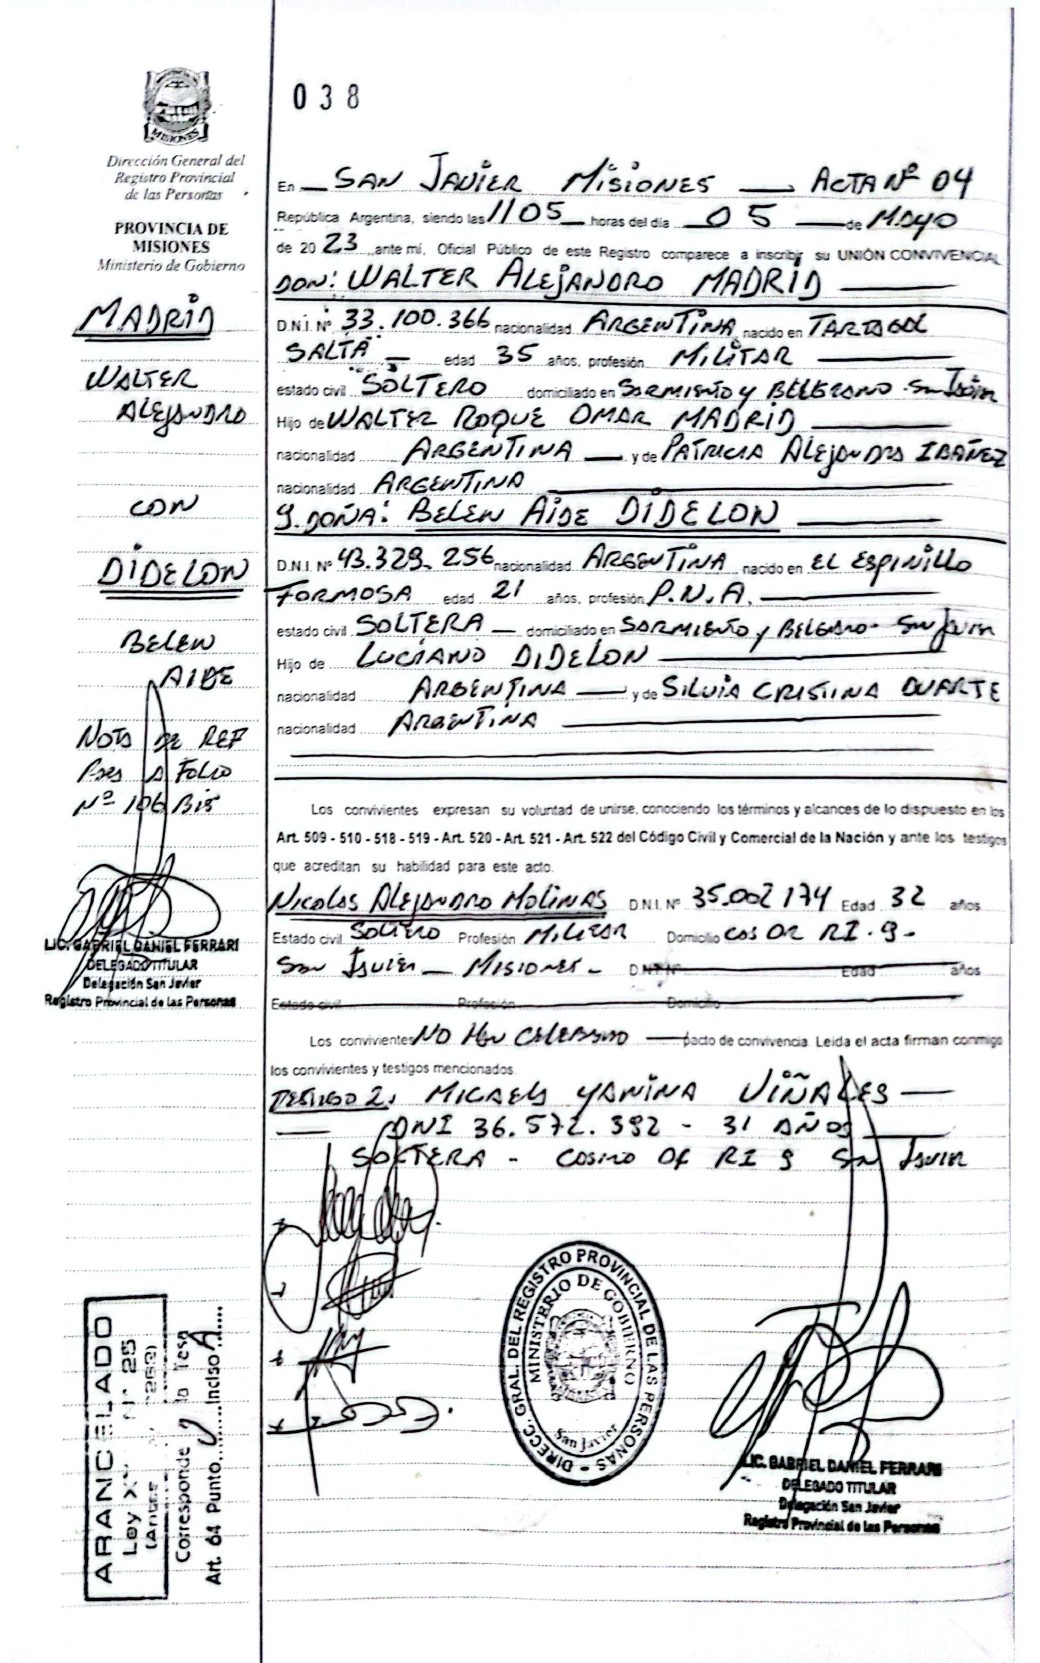 038
MISIONES
Dirección General del
Registro Provincial
de las Personas
PROVINCIA DE
MISIONES
Ministerio de Gobierno
MADRID
WALTER
ALEJANDRO
CON
DIDELON
BELEN
AIDE
NOTA DE REF
Pasa A Folio
Nº 106 Bis
LIC. GABRIEL DANIEL FERRARI
DELEGADO TITULAR
Delegación San Javier
Registro Provincial de las Personas
En SAN JAVIER MISIONES ACTA Nº 04
República Argentina, siendo las 1105 horas del día 05 de MAYO
de 2023 ante mí, Oficial Público de este Registro comparece a inscribir su UNIÓN CONVIVENCIAL
DON: WALTER ALEJANDRO MADRID
D.N.I. Nº 33.100.366 nacionalidad ARGENTINA nacido en TARTAGAL
SALTA edad 35 años, profesión MILITAR
estado civil SOLTERO domiciliado en SARMIENTO y BELGRANO San Javier
Hijo de WALTER ROQUE OMAR MADRID
nacionalidad ARGENTINA y de PATRICIA ALEJANDRA IBAÑEZ
nacionalidad ARGENTINA
Y. DOÑA: BELEN AIDE DIDELON
D.N.I. Nº 43.329.256 nacionalidad ARGENTINA nacido en EL ESPINILLO
FORMOSA edad 21 años, profesión P.N.A.
estado civil SOLTERA domiciliado en SARMIENTO y BELGRANO - San Javier
Hijo de LUCIANO DIDELON
nacionalidad ARGENTINA y de SILVIA CRISTINA DUARTE
nacionalidad ARGENTINA
Los convivientes expresan su voluntad de unirse, conociendo los términos y alcances de lo dispuesto en los
Art. 509 - 510 - 518 - 519 - Art. 520 - Art. 521 - Art. 522 del Código Civil y Comercial de la Nación y ante los testigos
que acreditan su habilidad para este acto.
Nicolas Alejandro Molinas D.N.I. Nº 35.002174 Edad 32 años
Estado civil Soltero Profesión Militar Domicilio Cos Of RI. 9 -
San Javier - Misiones - D.N.I. Nº Edad años
Estado civil Profesión Domicilio
Los convivientes NO Han Celebrado pacto de convivencia. Leida el acta firman conmigo
los convivientes y testigos mencionados.
TESTIGO 2. MICAELA YANINA VIÑALES
DNI 36.572.392 - 31 AÑOS
SOLTERA - Casino Of RI 9 San Javier
DIRECC. GRAL. DEL REGISTRO PROVINCIAL DE LAS PERSONAS
MINISTERIO DE GOBIERNO
San Javier
LIC. GABRIEL DANIEL FERRARI
DELEGADO TITULAR
Delegación San Javier
Registro Provincial de las Personas
ARANCELADO
Corresponde la Tasa
Art. 64 Punto Inciso A